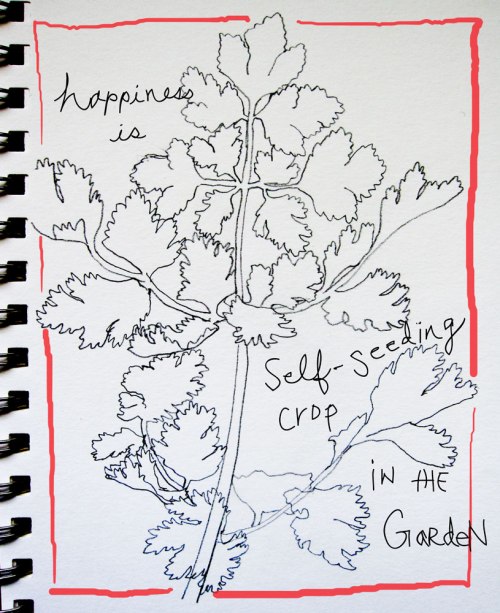 happiness
is
Self-Seeding
crop
in the
GardeN